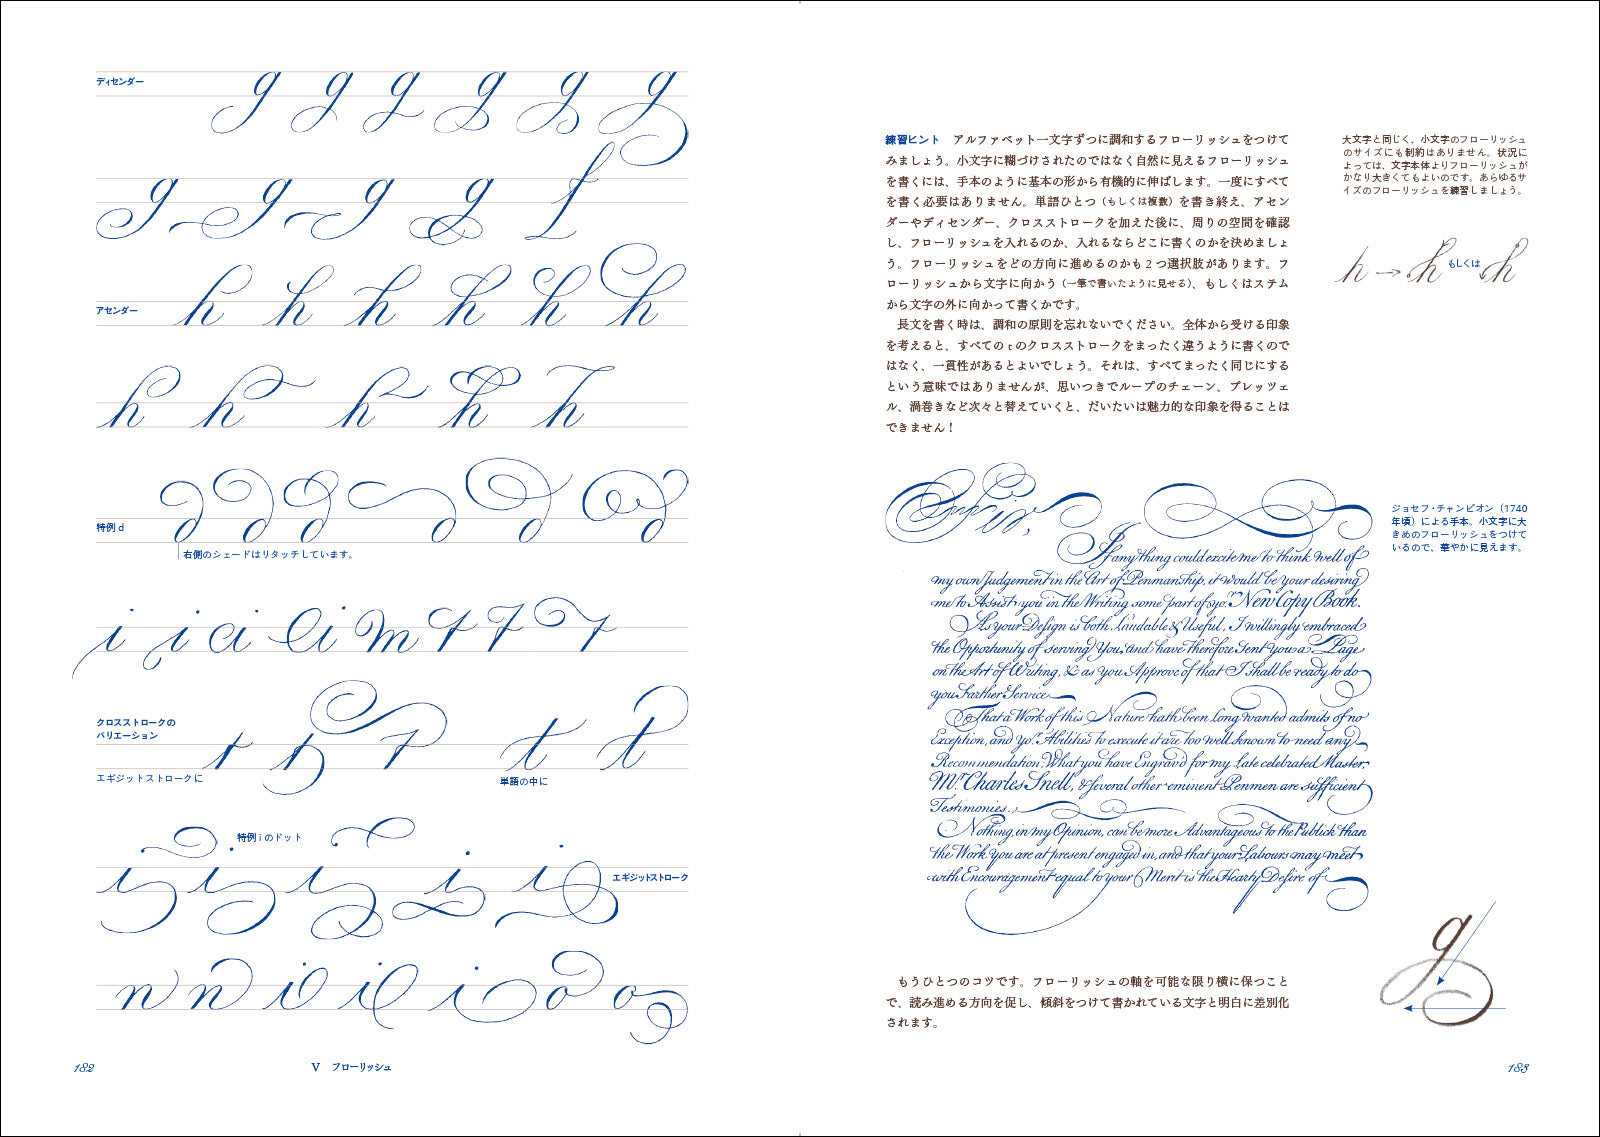 ディセンダー
g g g g g g
g g g g f
アセンダー
h h h h h h
h h h h h
特例 d
d d d d d d
右側のシェードはリタッチしています。
i i a i m t t t
クロスストロークの
バリエーション
t t t t t
エギジットストロークに
単語の中に
特例 i のドット
i i i i i
エギジットストローク
n n i i i o o
182
V フローリッシュ
練習ヒント アルファベット一文字ずつに調和するフローリッシュをつけて
みましょう。小文字に糊づけされたのではなく自然に見えるフローリッシュ
を書くには、手本のように基本の形から有機的に伸ばします。一度にすべて
を書く必要はありません。単語ひとつ（もしくは複数）を書き終え、アセン
ダーやディセンダー、クロスストロークを加えた後に、周りの空間を確認
し、フローリッシュを入れるのか、入れるならどこに書くのかを決めましょ
う。フローリッシュをどの方向に進めるのかも2つ選択肢があります。フ
ローリッシュから文字に向かう（一筆で書いたように見せる）、もしくはステム
から文字の外に向かって書くかです。
長文を書く時は、調和の原則を忘れないでください。全体から受ける印象
を考えると、すべての t のクロスストロークをまったく違うように書くので
はなく、一貫性があるとよいでしょう。それは、すべてまったく同じにする
という意味ではありませんが、思いつきでループのチェーン、プレッツェ
ル、渦巻きなど次々と替えていくと、だいたいは魅力的な印象を得ることは
できません！
大文字と同じく、小文字のフローリッシュ
のサイズにも制約はありません。状況に
よっては、文字本体よりフローリッシュが
かなり大きくてもよいのです。あらゆるサ
イズのフローリッシュを練習しましょう。
h → h もしくは h
Sir,
If any thing could excite me to think well of
my own Judgement in the Art of Penmanship, it would be your desiring
me to Assist you in the Writing some part of yo.r New Copy Book.
As your Design is both Laudable & Useful, I willingly embraced
the Opportunity of serving You, and have therefore Sent you a Page
on the Art of Writing, & as you Approve of that I shall be ready to do
you Farther Service.
That a Work of this Nature hath been long wanted admits of no
Exception, and yo.r Abilities to execute it are too well known to need any
Recommendation: What you have Engrav'd for my late celebrated Master,
Mr. Charles Snell, & several other eminent Penmen are sufficient
Testimonies.
Nothing, in my Opinion, can be more Advantageous to the Publick than
the Work you are at present engaged in, and that your Labours may meet
with Encouragement equal to your Merit is the Hearty Desire of
ジョセフ・チャンピオン（1740
年頃）による手本。小文字に大
きめのフローリッシュをつけて
いるので、華やかに見えます。
もうひとつのコツです。フローリッシュの軸を可能な限り横に保つこと
で、読み進める方向を促し、傾斜をつけて書かれている文字と明白に差別化
されます。
g
183